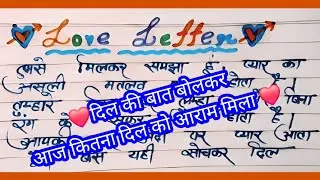 Love Letter
तुमसे मिलकर समझा है प्यार का
असली मतलब होता है।
तुम्हारे बिना
रंग के सफर होता है।
आपकी पर प्यार आता
बस यही सोचकर दिल
दिल की बात बोलकर
आज कितना दिल को आराम मिला